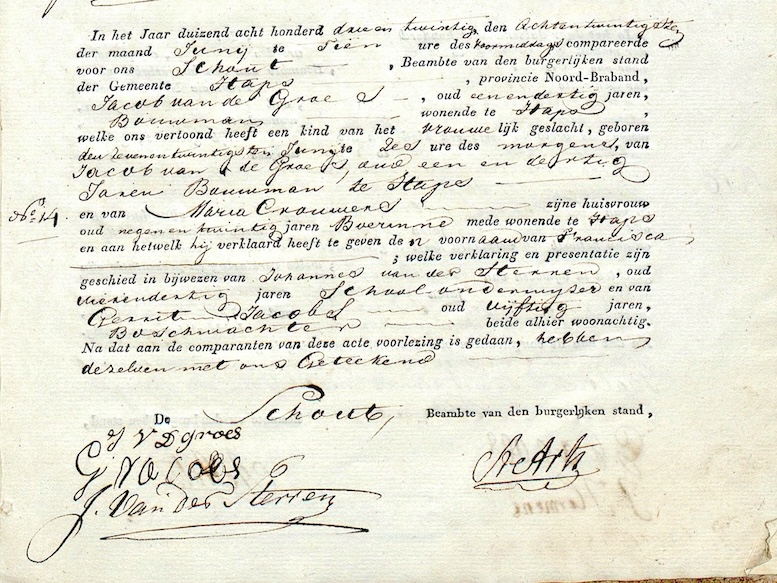 In het Jaar duizend acht honderd drie en twintig, den Achtentwintigsten
der maand Junij te Tien ure des voormiddags compareerde
voor ons Schout, Beambte van den burgerlijken stand
der Gemeente Haps, provincie Noord-Braband,
Jacob van de Groes, oud een endertig jaren,
Bouwman wonende te Haps,
welke ons vertoond heeft een kind van het vrouwelijk geslacht, geboren
den zevenentwintigsten Junij te zes ure des morgens, van
Jacob van de Groes, oud een en dertig
Jaren Bouwman te Haps
No. 14. en van Maria Crouwers zijne huisvrouw
oud negenentwintig jaren Boerinne mede wonende te Haps
en aan hetwelk hij verklaard heeft te geven den voornaam van Francisca
; welke verklaring en presentatie zijn
geschied in bijwezen van Johannes van der Sterren, oud
vierendertig jaren Schoolonderwyser en van
Gerrit Jacobs oud vijftig jaren,
Boschwachter beide alhier woonachtig.
Na dat aan de comparanten van deze acte voorlezing is gedaan, hebben
dezelven met ons Geteekend
De Schout, Beambte van den burgerlijken stand,
J V D groes
G Jacobs
J. Van der Sterren